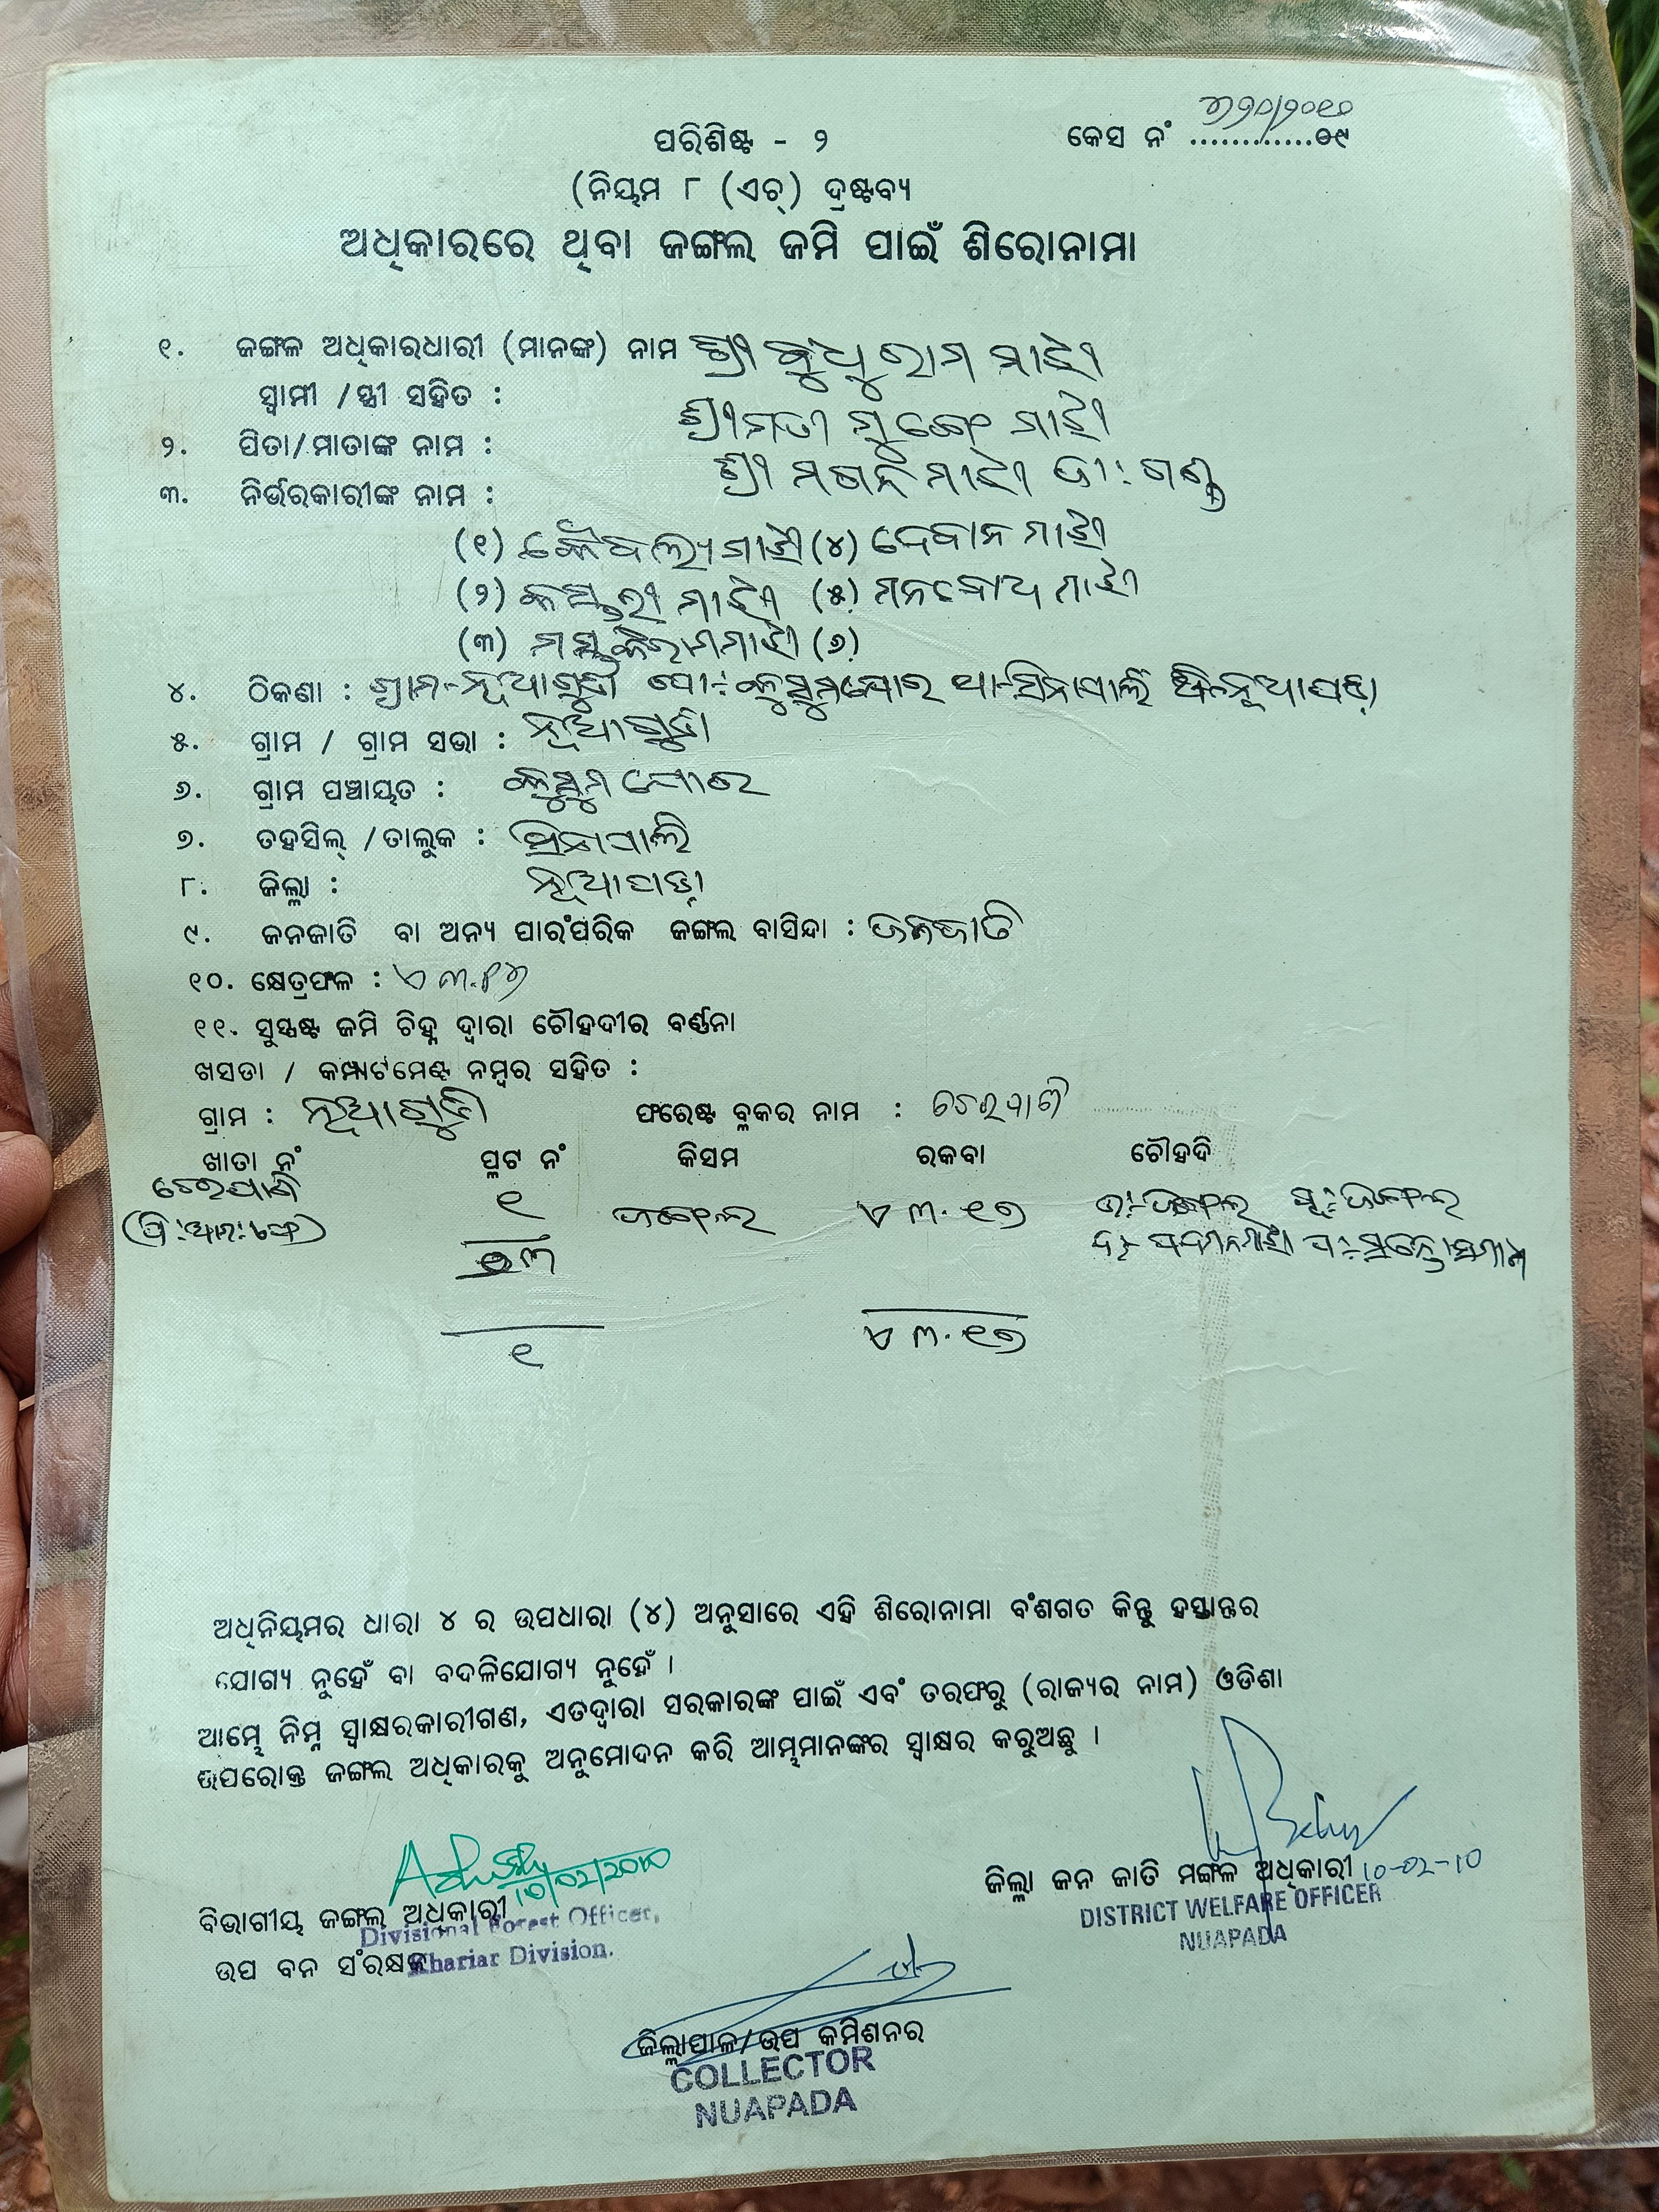 ୭୨୦/୨୦୧୦
ପରିଶିଷ୍ଟ - ୨ କେସ ନଂ ............୦୯
(ନିୟମ ୮ (ଏଚ୍) ଦ୍ରଷ୍ଟବ୍ୟ
ଅଧିକାରରେ ଥିବା ଜଙ୍ଗଲ ଜମି ପାଇଁ ଶିରୋନାମା
୧. ଜଙ୍ଗଳ ଅଧିକାରଧାରୀ (ମାନଙ୍କ) ନାମ ଶ୍ରୀ ବୁଧୁରାମ ମାଝୀ
ସ୍ଵାମୀ /ସ୍ତ୍ରୀ ସହିତ : ଶ୍ରୀମତୀ ମାଝୀ
୨. ପିତା/ମାତାଙ୍କ ନାମ : ଶ୍ରୀ ମଗନ ମାଝୀ ଜା: ଗଣ୍ଡ
୩. ନିର୍ଭରକାରୀଙ୍କ ନାମ :
(୧) କୈବଲ୍ୟ ମାଝୀ (୪) ଦେବାନ ମାଝୀ
(୨) କସ୍ତୁରୀ ମାଝୀ (୫) ମନବୋଧ ମାଝୀ
(୩) ମାଝୀ (୬)
୪. ଠିକଣା : ଗ୍ରାମ-ନୂଆଗୁଡୀ ପୋ:-କୁସୁମଯୋର ଥା-ସିନାପାଲି ଜି-ନୂଆପଡ଼ା
୫. ଗ୍ରାମ / ଗ୍ରାମ ସଭା : ନୂଆଗୁଡୀ
୬. ଗ୍ରାମ ପଞ୍ଚାୟତ : କୁସୁମଯୋର
୭. ତହସିଲ୍ /ତାଲୁକ : ସିନାପାଲି
୮. ଜିଲ୍ଲା : ନୂଆପଡ଼ା
୯. ଜନଜାତି ବା ଅନ୍ୟ ପାରଂପରିକ ଜଙ୍ଗଲ ବାସିନ୍ଦା : ଜନଜାତି
୧୦. କ୍ଷେତ୍ରଫଳ : ଏ ୩.୧୭
୧୧. ସୁସ୍ପଷ୍ଟ ଜମି ଚିହ୍ନ ଦ୍ଵାରା ଚୌହଦୀର ବର୍ଣ୍ଣନା
ଖସଡା / କମ୍ପାର୍ଟମେଣ୍ଟ ନମ୍ବର ସହିତ :
ଗ୍ରାମ : ନୂଆଗୁଡି ଫରେଷ୍ଟ ବ୍ଲକର ନାମ :
ଖାତା ନଂ ପ୍ଳଟ ନଂ କିସମ ରକବା ଚୌହଦି
୧ ଜଙ୍ଗଲ ଏ ୩.୧୭ ଉ:-ଜଙ୍ଗଲ ପୂ:-ଜଙ୍ଗଲ
(ପି:ଆର:ଏଫ)
୧ ଏ ୩.୧୭
ଅଧିନିୟମର ଧାରା ୪ ର ଉପଧାରା (୪) ଅନୁସାରେ ଏହି ଶିରୋନାମା ବଂଶଗତ କିନ୍ତୁ ହସ୍ତାନ୍ତର
ଯୋଗ୍ୟ ନୁହେଁ ବା ବଦଳିଯୋଗ୍ୟ ନୁହେଁ ।
ଆମ୍ଭେ ନିମ୍ନ ସ୍ଵାକ୍ଷରକାରୀଗଣ, ଏତଦ୍ଵାରା ସରକାରଙ୍କ ପାଇଁ ଏବଂ ତରଫରୁ (ରାଜ୍ୟର ନାମ) ଓଡିଶା
ଉପରୋକ୍ତ ଜଙ୍ଗଲ ଅଧିକାରକୁ ଅନୁମୋଦନ କରି ଆମ୍ଭମାନଙ୍କର ସ୍ଵାକ୍ଷର କରୁଅଛୁ ।
10/02/2010
ଜିଲ୍ଲା ଜନ ଜାତି ମଙ୍ଗଳ ଅଧିକାରୀ 10-02-10
DISTRICT WELFARE OFFICER
NUAPADA
ବିଭାଗୀୟ ଜଙ୍ଗଲ ଅଧିକାରୀ
Divisional Forest Officer,
ଉପ ବନ ସଂରକ୍ଷକ
Khariar Division.
ଜିଲ୍ଲାପାଳ/ଉପ କମିଶନର
COLLECTOR
NUAPADA